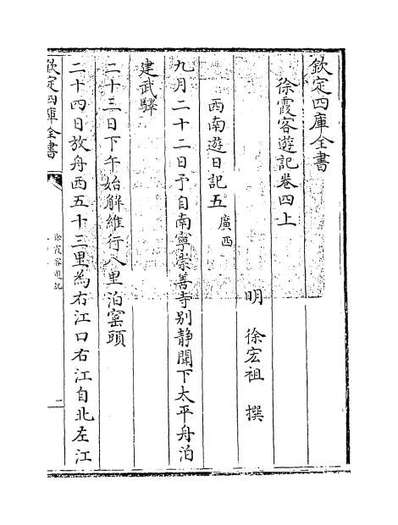 欽定四庫全書
徐霞客遊記卷四上
明 徐宏祖 撰
西南遊日記五廣西
九月二十二日予自南寧崇善寺别静聞下太平舟泊
建武驛
二十三日下午始解維行八里泊窰頭
二十四日放舟西五十三里為右江口右江自北左江
欽定四庫全書
徐霞客遊記
一